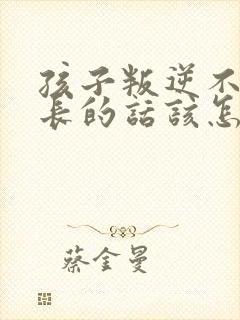 孩子叛逆不
長的話該怎
蔡金曼